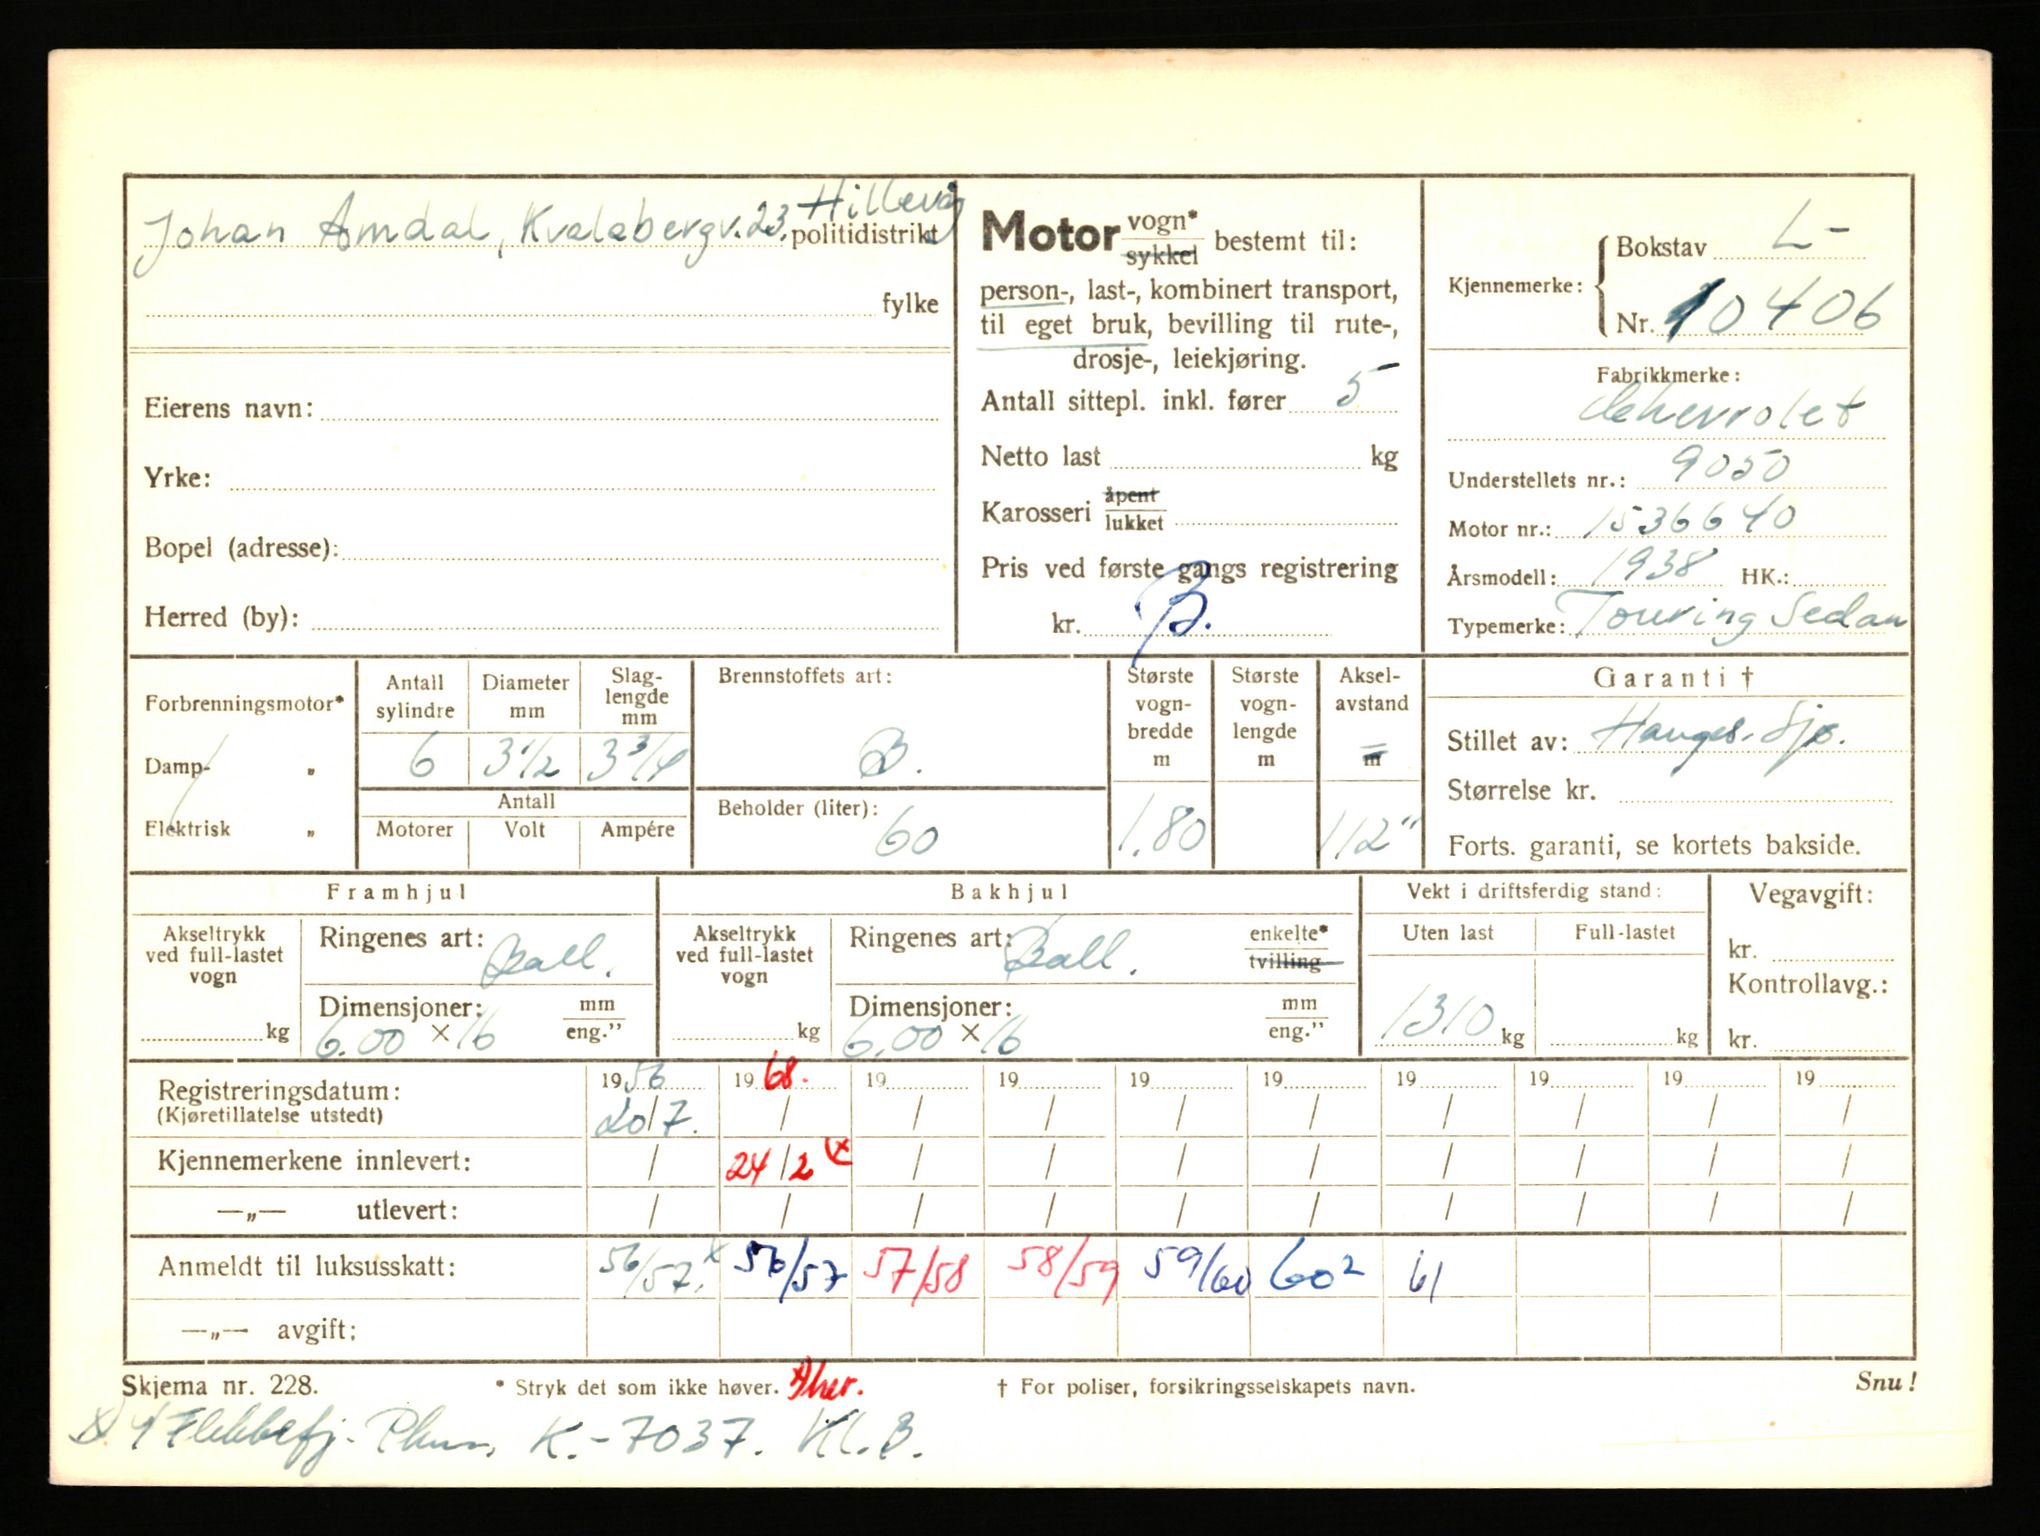 Johan Amdal, Kvalabergv.23. Hillevåg politidistrikt
fylke
Eierens navn:
Yrke:
Bopel (adresse):
Herred (by):
Motor vogn* sykkel bestemt til:
person-, last-, kombinert transport,
til eget bruk, bevilling til rute-,
drosje-, leiekjøring.
Antall sittepl. inkl. fører 5
Netto last kg
Karosseri åpent lukket
Pris ved første gangs registrering
kr. B.
Kjennemerke: Bokstav L-
Nr. 10406
Fabrikkmerke:
Chevrolet
Understellets nr.: 9050
Motor nr.: 1536640
Årsmodell: 1938 HK.:
Typemerke: Touring Sedan
Forbrenningsmotor*
Damp- „
Elektrisk „
Antall sylindre 6
Diameter mm 3 1/2
Slag-lengde mm 3 3/4
Antall
Motorer Volt Ampére
Brennstoffets art:
B.
Beholder (liter):
60
Største vogn-bredde m 1.80
Største vogn-lengde m
Aksel-avstand m 112"
Garanti †
Stillet av: Hauges. Sjø.
Størrelse kr.
Forts. garanti, se kortets bakside.
Framhjul
Akseltrykk ved full-lastet vogn
kg
Ringenes art: Ball.
Dimensjoner: mm
6.00 × 16 eng."
Bakhjul
Akseltrykk ved full-lastet vogn
kg
Ringenes art: Ball. enkelte* tvilling
Dimensjoner: mm
6.00 × 16 eng."
Vekt i driftsferdig stand:
Uten last Full-lastet
1310 kg kg
Vegavgift:
kr.
Kontrollavg.:
kr.
Registreringsdatum: 1956 1968. 19 19 19 19 19 19 19 19
(Kjøretillatelse utstedt) 20/7. / / / / / / / / /
Kjennemerkene innlevert: / 24/2 x / / / / / / / /
—„— utlevert: / / / / / / / / / /
Anmeldt til luksusskatt: 56/57.x 56/57 57/58 58/59 59/60 60² 61
—„— avgift:
Skjema nr. 228. * Stryk det som ikke høver. † For poliser, forsikringsselskapets navn. Snu!
Flekkefj. K.-7037. Kl.B.